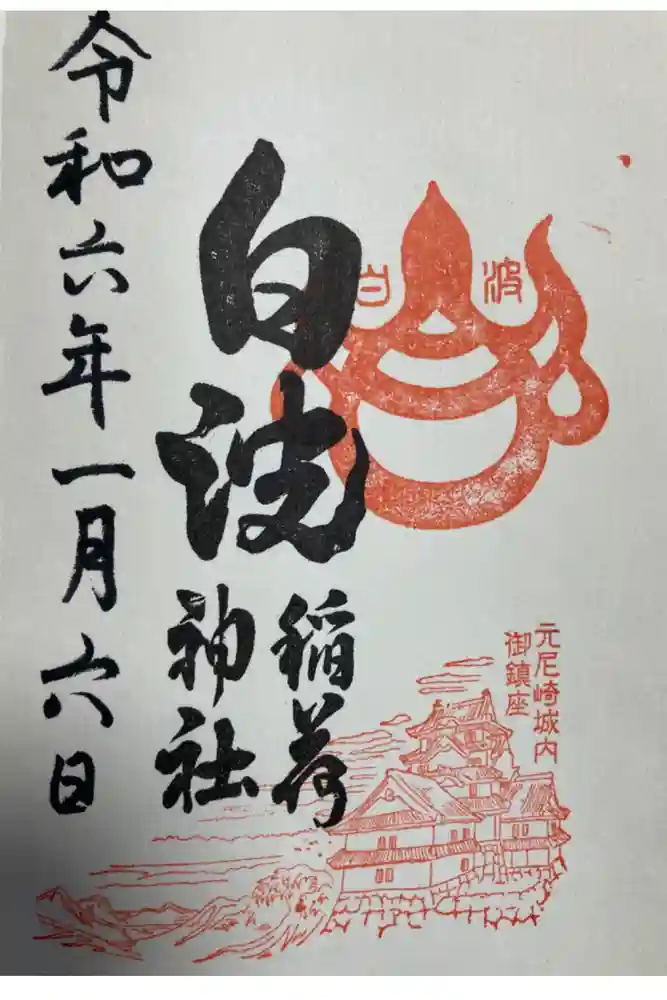 白波
元尼崎城内
御鎮座
白波
稲荷
神社
令和六年一月六日